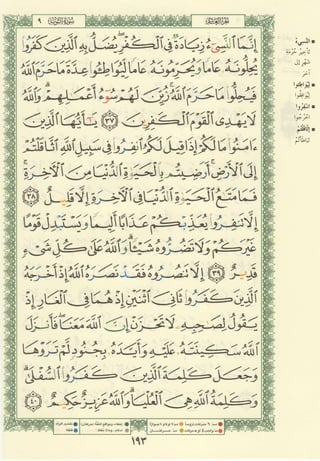 الجزء العاشر
سورة التوبة ٩
إِنَّمَا ٱلنَّسِىٓءُ زِيَادَةٌ فِى ٱلْكُفْرِ ۖ يُضَلُّ بِهِ ٱلَّذِينَ كَفَرُوا۟
يُحِلُّونَهُۥ عَامًا وَيُحَرِّمُونَهُۥ عَامًا لِّيُوَاطِـُٔوا۟ عِدَّةَ مَا حَرَّمَ ٱللَّهُ
فَيُحِلُّوا۟ مَا حَرَّمَ ٱللَّهُ ۚ زُيِّنَ لَهُمْ سُوٓءُ أَعْمَـٰلِهِمْ ۗ وَٱللَّهُ
لَا يَهْدِى ٱلْقَوْمَ ٱلْكَـٰفِرِينَ ٣٧ يَـٰٓأَيُّهَا ٱلَّذِينَ
ءَامَنُوا۟ مَا لَكُمْ إِذَا قِيلَ لَكُمُ ٱنفِرُوا۟ فِى سَبِيلِ ٱللَّهِ ٱثَّاقَلْتُمْ
إِلَى ٱلْأَرْضِ ۚ أَرَضِيتُم بِٱلْحَيَوٰةِ ٱلدُّنْيَا مِنَ ٱلْـَٔاخِرَةِ ۚ
فَمَا مَتَـٰعُ ٱلْحَيَوٰةِ ٱلدُّنْيَا فِى ٱلْـَٔاخِرَةِ إِلَّا قَلِيلٌ ٣٨
إِلَّا تَنفِرُوا۟ يُعَذِّبْكُمْ عَذَابًا أَلِيمًا وَيَسْتَبْدِلْ قَوْمًا
غَيْرَكُمْ وَلَا تَضُرُّوهُ شَيْـًٔا ۗ وَٱللَّهُ عَلَىٰ كُلِّ شَىْءٍ
قَدِيرٌ ٣٩ إِلَّا تَنصُرُوهُ فَقَدْ نَصَرَهُ ٱللَّهُ إِذْ أَخْرَجَهُ
ٱلَّذِينَ كَفَرُوا۟ ثَانِىَ ٱثْنَيْنِ إِذْ هُمَا فِى ٱلْغَارِ إِذْ
يَقُولُ لِصَـٰحِبِهِۦ لَا تَحْزَنْ إِنَّ ٱللَّهَ مَعَنَا ۖ فَأَنزَلَ
ٱللَّهُ سَكِينَتَهُۥ عَلَيْهِ وَأَيَّدَهُۥ بِجُنُودٍ لَّمْ تَرَوْهَا
وَجَعَلَ كَلِمَةَ ٱلَّذِينَ كَفَرُوا۟ ٱلسُّفْلَىٰ ۗ
وَكَلِمَةُ ٱللَّهِ هِىَ ٱلْعُلْيَا ۗ وَٱللَّهُ عَزِيزٌ حَكِيمٌ ٤٠
١٩٣
النسيء
تأخير حُرمة
شهر إلى
آخر
ليواطئوا
انفروا
اخرجوا
اثاقلتم